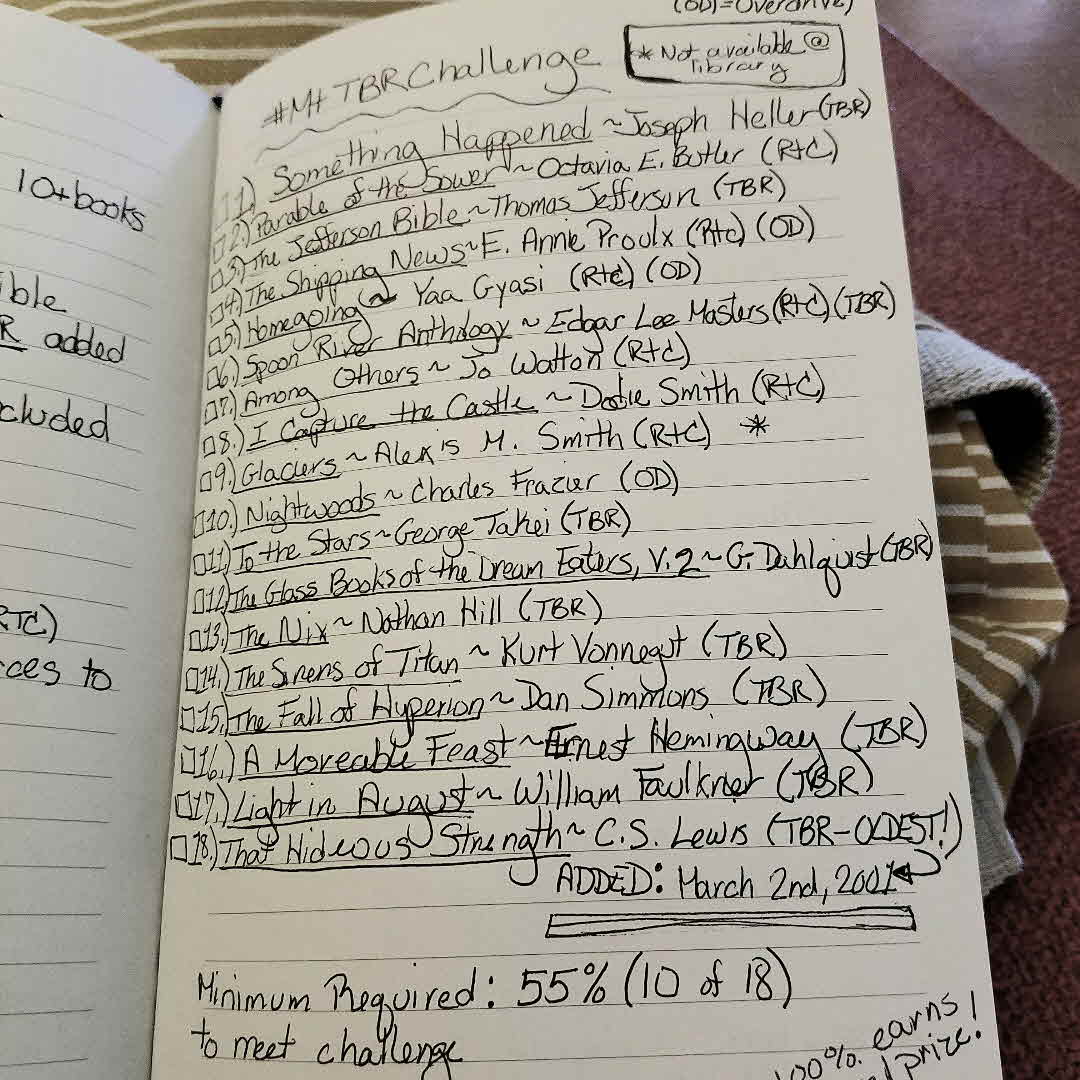 10+books
ible
R added
cluded
RTC)
ces to
(OD)=Overdrive)
* Not available @
library
#Mt TBR Challenge
1.) Something Happened ~ Joseph Heller (TBR)
2.) Parable of the Sower ~ Octavia E. Butler (RtC)
3.) The Jefferson Bible ~ Thomas Jefferson (TBR)
4.) The Shipping News ~ E. Annie Proulx (RtC) (OD)
5.) Homegoing ~ Yaa Gyasi (RtC) (OD)
6.) Spoon River Anthology ~ Edgar Lee Masters (RtC) (TBR)
7.) Among Others ~ Jo Walton (RtC)
8.) I Capture the Castle ~ Dodie Smith (RtC)
9.) Glaciers ~ Alexis M. Smith (RtC) *
10.) Nightwoods ~ Charles Frazier (OD)
11.) To the Stars ~ George Takei (TBR)
12.) The Glass Books of the Dream Eaters, V.2 ~ G. Dahlquist (TBR)
13.) The Nix ~ Nathan Hill (TBR)
14.) The Sirens of Titan ~ Kurt Vonnegut (TBR)
15.) The Fall of Hyperion ~ Dan Simmons (TBR)
16.) A Moveable Feast ~ Ernest Hemingway (TBR)
17.) Light in August ~ William Faulkner (TBR)
18.) That Hideous Strength ~ C.S. Lewis (TBR-OLDEST!)
ADDED: March 2nd, 2001
Minimum Required: 55% (10 of 18)
to meet challenge
100% earns
prize!